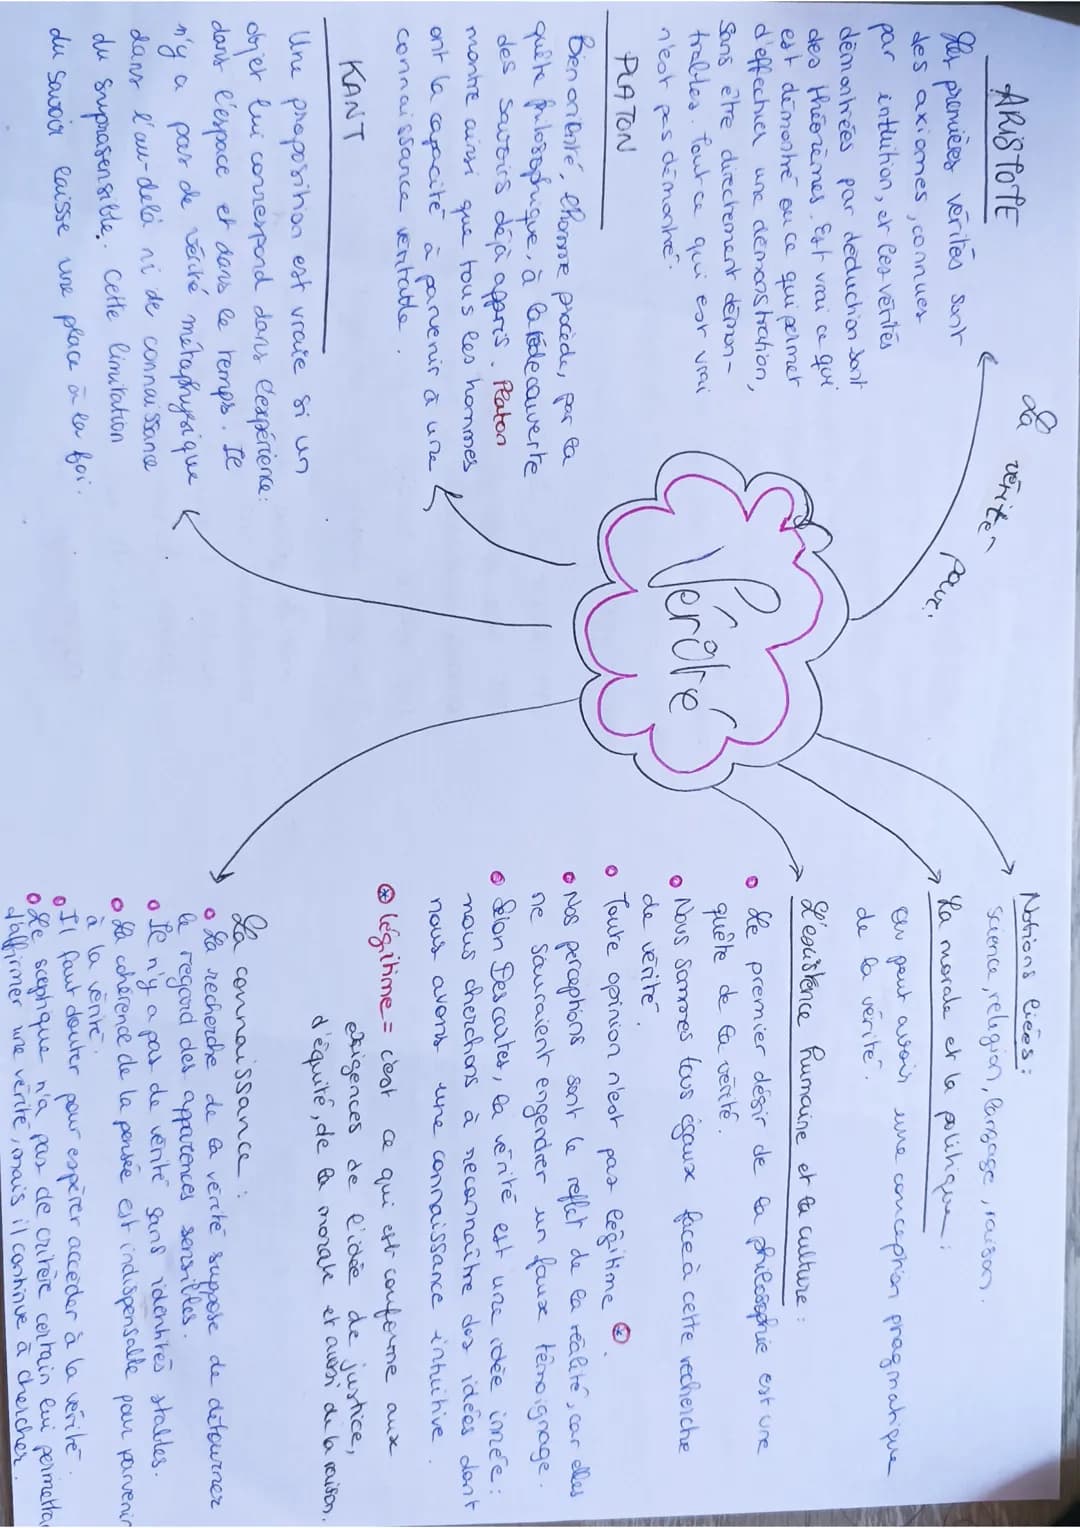 La vérité pour:
ARISTOTE
Les premières vérités sont
des axiomes, connues
par intuition, et les vérités
démontrées par déduction sont
des théorèmes. Est vrai ce qui
est démontré ou ce qui permet
d'effectuer une démonstration,
sans être directement démon-
trables. Tout ce qui est vrai
n'est pas démontré.
PLATON
Bien orienté, l'homme procède, par la
quête philosophique, à la redécouverte
des savoirs déjà appris. Platon
montre ainsi que tous les hommes
ont la capacité à parvenir à une
connaissance véritable.
KANT
Une proposition est vraie si un
objet lui correspond dans l'expérience:
dans l'espace et dans le temps. Il
n'y a pas de vérité métaphysique
dans l'au-delà ni de connaissance
du suprasensible. Cette limitation
du savoir laisse une place à la foi.
Vérité
Notions liées:
science, religion, langage, raison.
La morale et la politique:
On peut avoir une conception pragmatique
de la vérité.
L'existence humaine et la culture:
Le premier désir de la philosophie est une
quête de la vérité.
Nous sommes tous égaux face à cette recherche
de vérité.
Toute opinion n'est pas légitime *.
Nos perceptions sont le reflet de la réalité, car elles
ne sauraient engendrer un faux témoignage.
Selon Descartes, la vérité est une idée innée:
nous cherchons à reconnaître des idées dont
nous avons une connaissance intuitive.
* légitime = c'est ce qui est conforme aux
exigences de l'idée de justice,
d'équité, de la morale et aussi de la raison.
La connaissance:
La recherche de la vérité suppose de détourner
le regard des apparences sensibles.
Il n'y a pas de vérité sans identités stables.
La cohérence de la pensée est indispensable pour parvenir
à la vérité.
Il faut douter pour espérer accéder à la vérité.
Le sceptique n'a pas de critère certain lui permetta
d'affirmer une vérité, mais il continue à chercher.